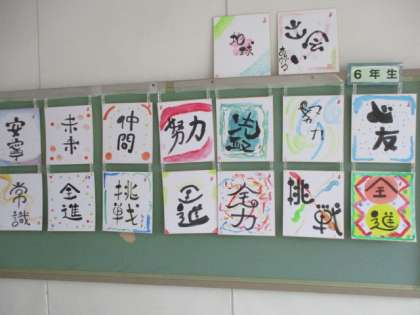 地球
出会い
6年生
安寧
未来
仲間
努力
努力
心友
常識
全進
挑戦
全進
全力
挑戦
全進